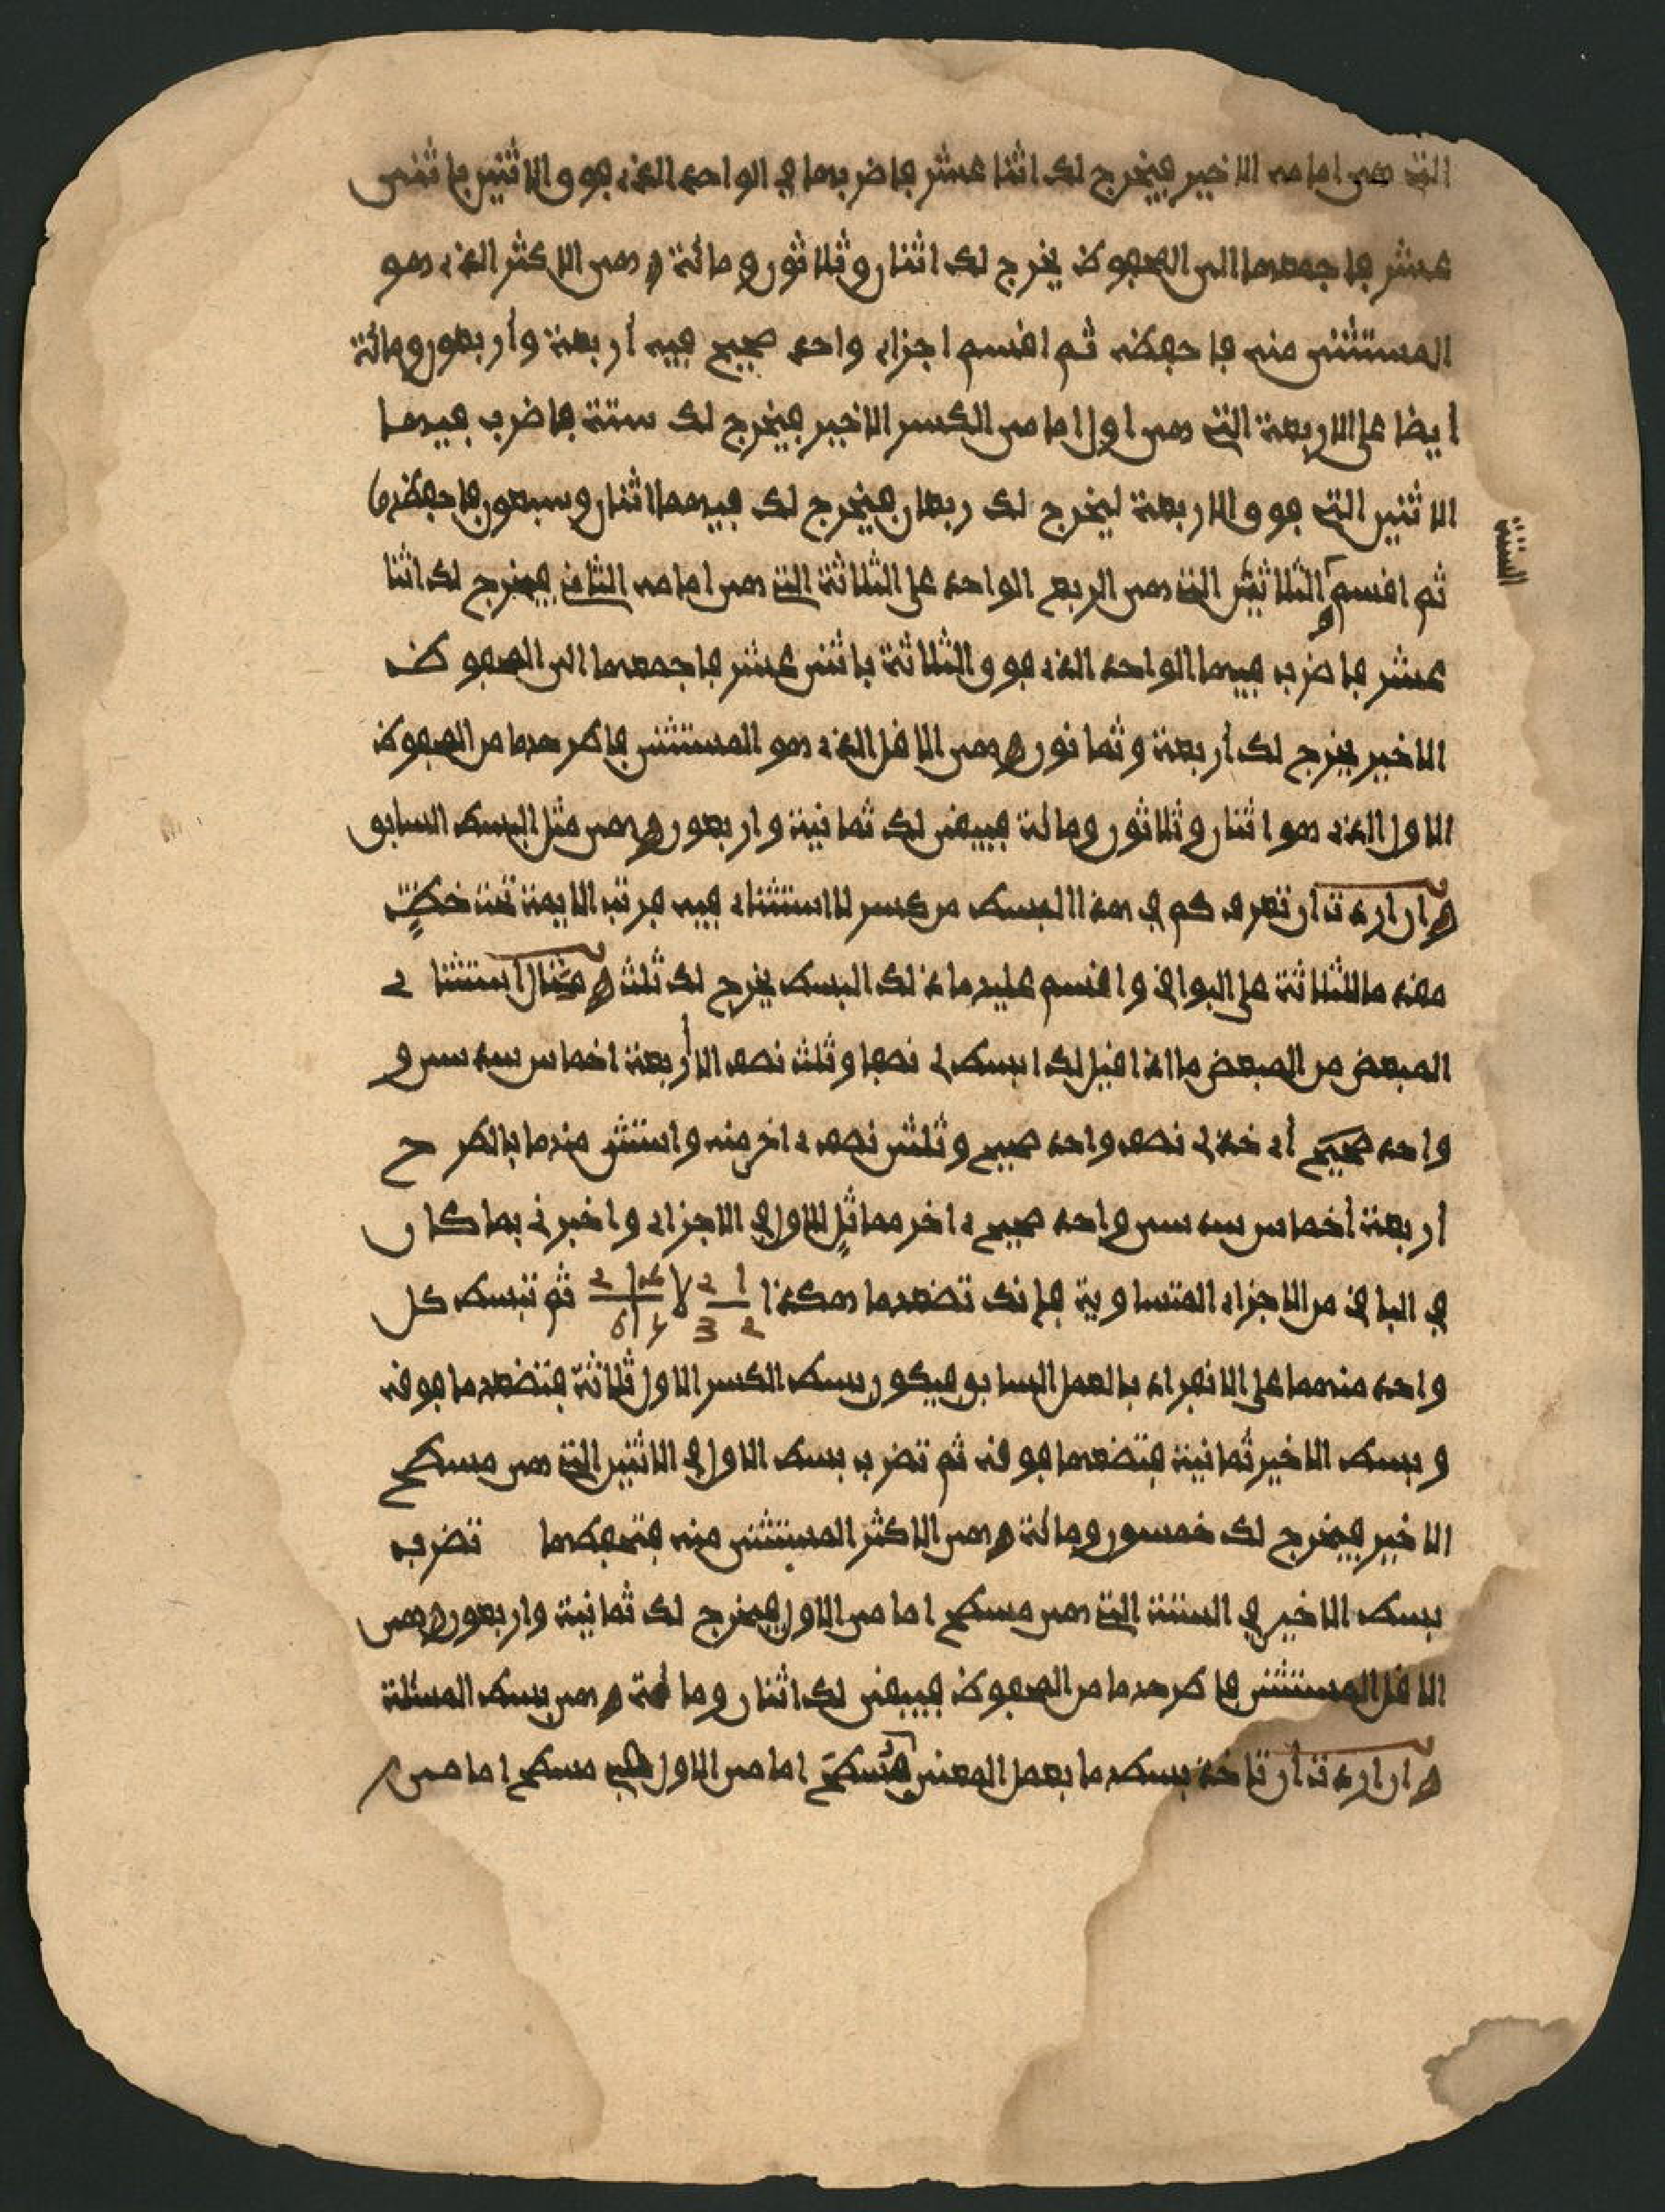 التي هي امامه الاخير فيخرج لك اثنا عشر فاضربها في الواحد الذي فوق الاثنين باثني
عشر فاجمعها الى المحفوظ يخرج لك اثنان وثلاثون ومائة وهي الاكثر الذي هو
المستثنى منه فاحفظه ثم اقسم اجزاء واحد صحيح فيه أربعة وأربعون ومائة
أيضا على الاربعة التي هي اول امامي الكسر الاخير فيخرج لك ستة فاضرب فيهما
الاثنين التي فوق الاربعة ليخرج لك ربعان فيخرج لك فيهما اثنان وسبعون فاحفظه
الستة
ثم اقسم الثلاثين التي هي الربع الواحد على الثلاثة التي هي امامه الثاني فيخرج لك اثنا
عشر فاضرب فيهما الواحد الذي فوق الثلاثة باثني عشر فاجمعهما الى المحفوظ
الاخير يخرج لك أربعة وثمانون وهي الاقل الذي هو المستثنى فاطرحها من المحفوظ
الاول الذي هو اثنان وثلاثون ومائة فيبقى لك ثمانية واربعون وهي مثل البسط السابق
وان اردت ان تعرف كم في هذا البسط من كسر للاستثناء فيه فرتب الايمة تحت خط
هذه الثلاثة على البواقي واقسم عليها ذلك البسط يخرج لك ثلث ومثال استثناء
المبعض من المبعض ما اذا قيل لك ابسط لي نصفا وثلث نصف الا أربعة اخماس سدسي و
واحد صحيح أي خذ لي نصف واحد صحيح وثلثي نصف ءاخر منه واستثن منهما بالطرح
أربعة أخماس سدسي واحد صحيح ءاخر مماثل للاول في الاجزاء واخبرني بما كان
في الباقي من الاجزاء المتساوية فإنك تضعهما هكذا 1 2 / 2 3 لا 4 1 2 / 5 6 ثم تبسط كل
واحد منهما على الانفراد بالعمل السابق فيكون بسط الكسر الاول ثلاثة فتضعها فوقه
وبسط الاخير ثمانية فتضعها فوقه ثم تضرب بسط الاول في الاثنين التي هي مسطح
الاخير فيخرج لك خمسون ومائة وهي الاكثر المستثنى منه فتحفظها تضرب
بسط الاخير في الستة التي هي مسطح امامي الاول فيخرج لك ثمانية واربعون وهي
الاقل المستثنى فاطرحها من المحفوظ فيبقى لك اثنان ومائة وهي بسط المسئلة
وان اردت أن تاخذ بسطها بعمل المعنى فسطح امامي الاول في مسطح امامي